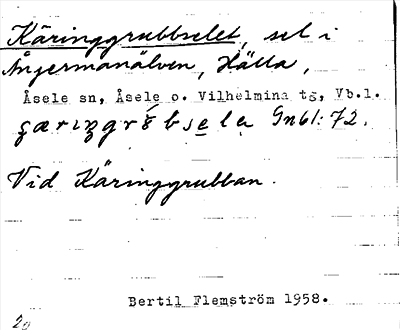 Käringgrubbselet, sel i
Ångermanälven, Hälla,
Åsele sn, Åsele o. Vilhelmina ts, Vb.l.
Gnbl: 72.
Vid Käringgrubban.
Bertil Flemström 1958.